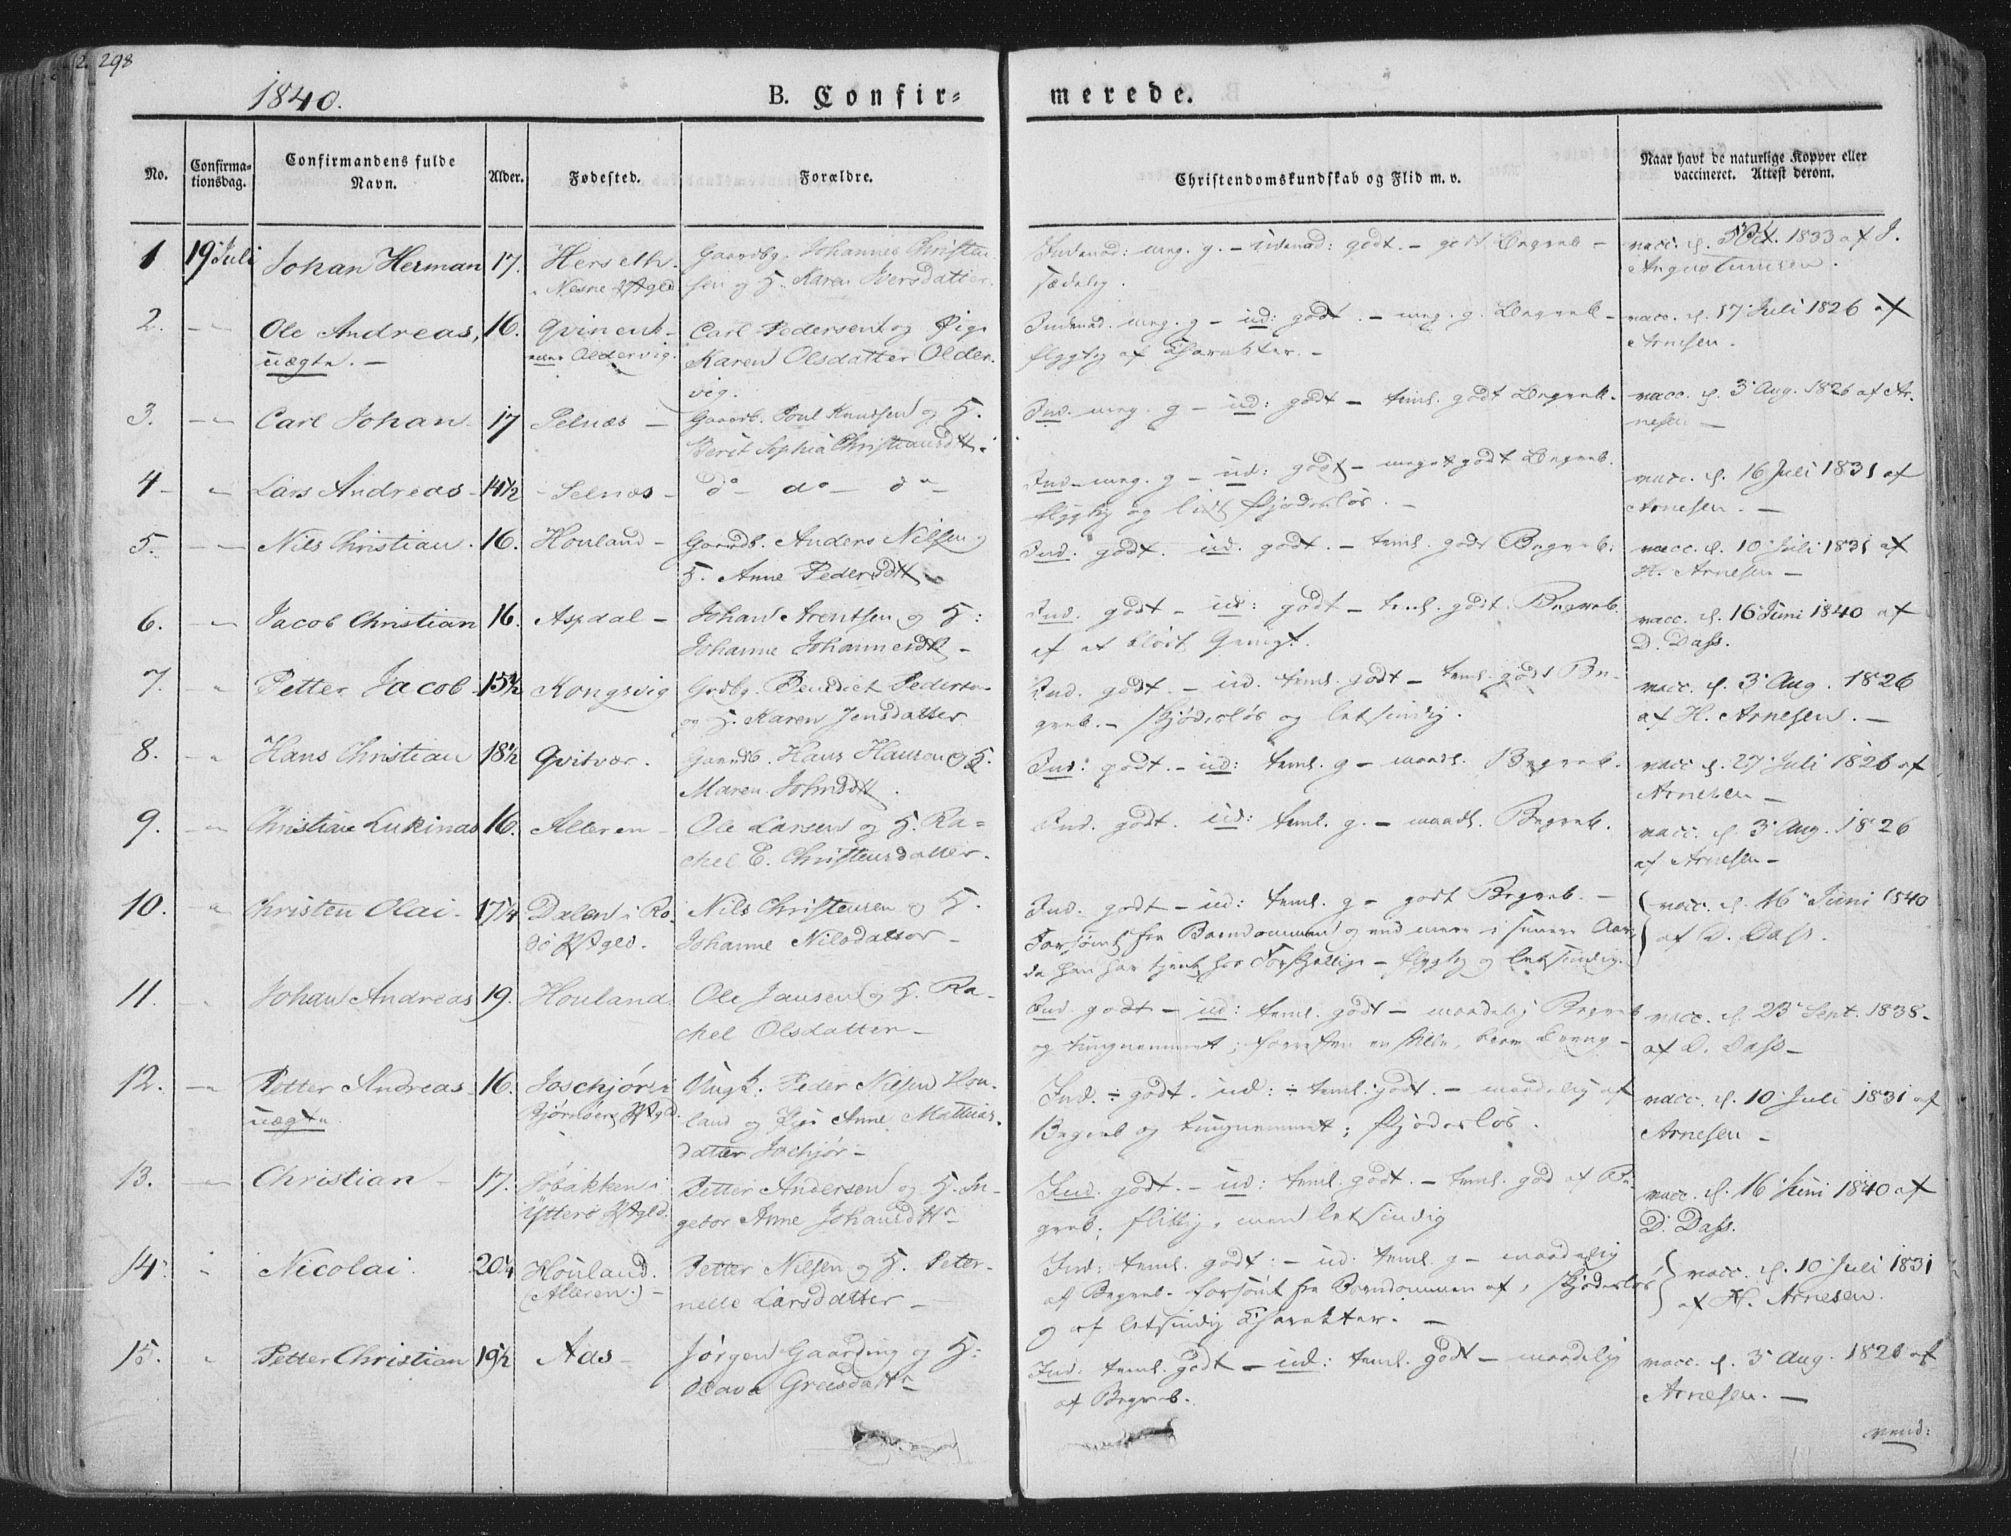 298
1840.
B. Confir=
merede.
No.
Confirma=
tionsdag.
Confirmandens fulde
Navn.
Alder.
Fødested.
Forældre.
Christendomskundskab og Flid m. v.
Naar havt de naturlige Kopper eller
vaccineret. Attest derom.
1 19 Juli Johan Herman 17. Herseth. Gaardbg. Johannes Christen
Nesne Pgld sen og H. Karen Iversdatter.
Indenad: meg. g. - udenad: godt. - godt Begreb -
sædelig.
vacc. d. 5 Oct. 1833 af J.
2. Ole Andreas, 16. Carl Pedersen og Pige
uægte. - Oldervig. Karen Olsdatter Older
vig.
Indenad. meg. g - ud: godt. - meg. g. Begreb -
af Charakter. -
vacc. d. 17 Juli 1826 af
Arnesen.
3. Carl Johan 17 Selnæs - Gaardb. Poul Knudsen og H.
Berit Sophia Christiansdtt.
Ind. meg. g - ud: godt - teml. godt Begreb.
vacc. d. 3 Aug. 1826 af Ar.
nesen -
4 - Lars Andreas - 14½ - Selnæs - do - do - do -
Ind. meg. g - ud: godt - meget godt Begreb.
og lidt skjødesløs. -
vacc. d. 16 Juli 1831 af
Arnesen. -
5. Nils Christian. 16. Houland - Gaardb. Anders Nilsen og
H. Anne Pedersdtt -
Ind. godt. ud. godt. - teml. godt Begreb.
vacc. d. 10 Juli 1831 af
H. Arnesen -
6. Jacob Christian 16. Aspdal - Johan Arentsen og H:
Johanne Johannesdtt -
Ind. godt - ud: godt - teml. godt Begreb.
af et blødt Gemyt.
vacc. d. 16 Juni 1840 af
D. Dass.
7. Petter Jacob 15½ Kongsvig Grdbg. Bendict Pedersen
og H. Karen Jensdatter
Ind. godt. - ud. teml. godt - teml. godt Be-
greb. - skjødesløs og letsindig.
vacc. d. 3 Aug. 1826
af H. Arnesen. -
8. Hans Christian 18½ Qvitvær. Gaardb. Hans Hanson og H.
Maren Johnsdtt.
Ind: godt. - ud: teml. g - maadl. Begreb.
vacc d. 27 Juli 1826 af
Arnesen -
9. Christian Lukinas 16. Alteren - Ole Larsen og H. Ra=
chel E. Christensdatter.
Ind. godt. ud: teml. g. - maadl. Begreb.
vacc. d. 3 Aug. 1826
af Arnesen -
10. Christen Olai - 17¼ Dalen i Ro- Nils Christensen og H.
dö Pgld. Johanne Nilsdatter -
Ind. godt - ud: teml. g - godt Begreb. -
Forsømt fra Barndommen og end mere i senere Aar,
da han har tjent hos Forskjellige - og letsindig.
vacc. d. 16 Juni 1840
af D. Dass.
11. Johan Andreas 19. Houland Ole Jansen og H. Ra-
chel Olsdatter -
Ind. godt - ud: teml. godt - maadelig Begreb
og tungnemmet; forresten en stille, brav Dreng -
vacc. d. 23 Sept. 1838 -
af D. Dass -
12. Petter Andreas 16. Ungk. Peder Nilsen Hou-
uægte Pgld. land og Pige Anne Mathias.
datter
Ind. godt. ud: teml. godt. - maadelig af
Begreb og tungnemmet; skjødesløs.
vacc. d. 10 Juli 1831 af
Arnesen -
13. Christian - 17. Petter Andersen og H. In-
Pgld. gebor Anne Johansdtr
Ind. godt. - ud: teml. godt. - teml. god af Be-
greb; flittig, men letsindig
vacc. d. 16 Juni 1840 af
D. Dass.
14. Nicolai. 20¼ Houland. Petter Nilsen og H. Peter-
(Alteren) - nelle Larsdatter -
Ind: teml. godt: - ud: teml. g - maadelig
af Begreb. forsømt fra Barndommen af, skjødesløs
og af letsindig Charakter. -
vacc. d. 10 Juli 1831
af H. Arnesen.
15. Petter Christian 19½ Aas - Jörgen Gaarding og H:
Ind: teml. godt - ud: teml. godt - maadelig
af Begreb.
vacc. d. 3 Aug. 1826 af
Arnesen. -
vend: